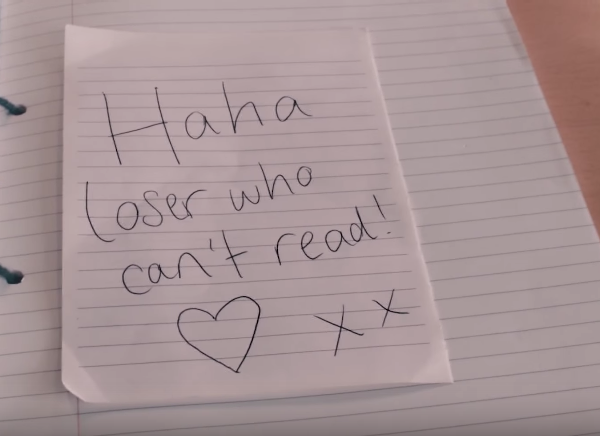 Haha
loser who
can't read!
xx